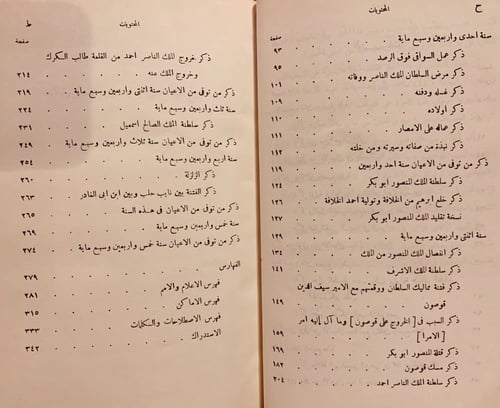 ح
المحتويات
صفحة
سنة احدى واربعين وسبع ماية
٩٣
ذكر عمل السواق فوق الرصد . . . . . ٩٥
ذكر مرض السلطان الملك الناصر ووفاته . . . . ١٠١
ذكر غسله ودفنه . . . . . ١٠٩
ذكر اولاده . . . . . ١١٠
ذكر عماله على الامصار . . . . . ١١١
ذكر نبذة من صفاته وسيرته ومن خلته . . . . ١١٢
ذكر من توفى من الاعيان سنة احد واربعين . . . .
ذكر سلطنة الملك المنصور ابو بكر . . . . ١٢٤
ذكر خلع ابرهيم من الخلافة وتولية احمد الخلافة . . . ١٢٦
نسخة تقليد الملك المنصور ابو بكر . . . . ١٢٧
سنة اثنتى واربعين وسبع ماية . . . . ١٢٩
ذكر انفصال الملك المنصور من الملك . . . . ١٣٤
ذكر سلطنة الملك الاشرف . . . . ١٤١
ذكر فتنة مماليك السلطان ووقعتهم مع الامير سيف الدين
قوصون . . . . ١٤٩
ذكر السبب فى [ الخروج على قوصون ] وما آل إليه امر
[ الامرا ] . . . . ١٥٩
ذكر قتلة المنصور ابو بكر . . . . ١٦٩
ذكر مسك قوصون . . . . ١٨٢
ذكر سلطنة الملك الناصر احمد . . . . ٢٠٤
المحتويات
ط
صفحة
ذكر خروج الملك الناصر احمد من القلعة طالب الكرك
وخروج الملك عنه . . . . ٢١٤
ذكر من توفى من الاعيان سنة اثنتى واربعين وسبع ماية . ٢١٩
سنة ثلث واربعين وسبع ماية . . . . ٢٢٤
ذكر سلطنة الملك الصالح اسمعيل . . . . ٢٣١
ذكر من توفى من الاعيان سنة ثلاث واربعين وسبع ماية . ٢٤٩
سنة اربع واربعين وسبع ماية . . . . ٢٥٤
ذكر الزلزلة . . . . ٢٦٠
ذكر الفتنة بين نايب حلب وبين ابن ابى الغادر . . . ٢٦٣
ذكر من توفى من الاعيان فى هذه السنة . . . ٢٦٥
سنة خمس واربعين وسبع ماية . . . . ٢٦٩
ذكر من توفى من الاعيان سنة خمس واربعين وسبع ماية . ٢٧٤
الفهارس . . . . ٢٧٩
فهرس الاعلام والامم . . . . ٢٨١
فهرس الاماكن . . . . ٣١٥
فهرس الاصطلاحات والكلمات . . . . ٣٣٣
الاستدراك . . . . ٣٤٢